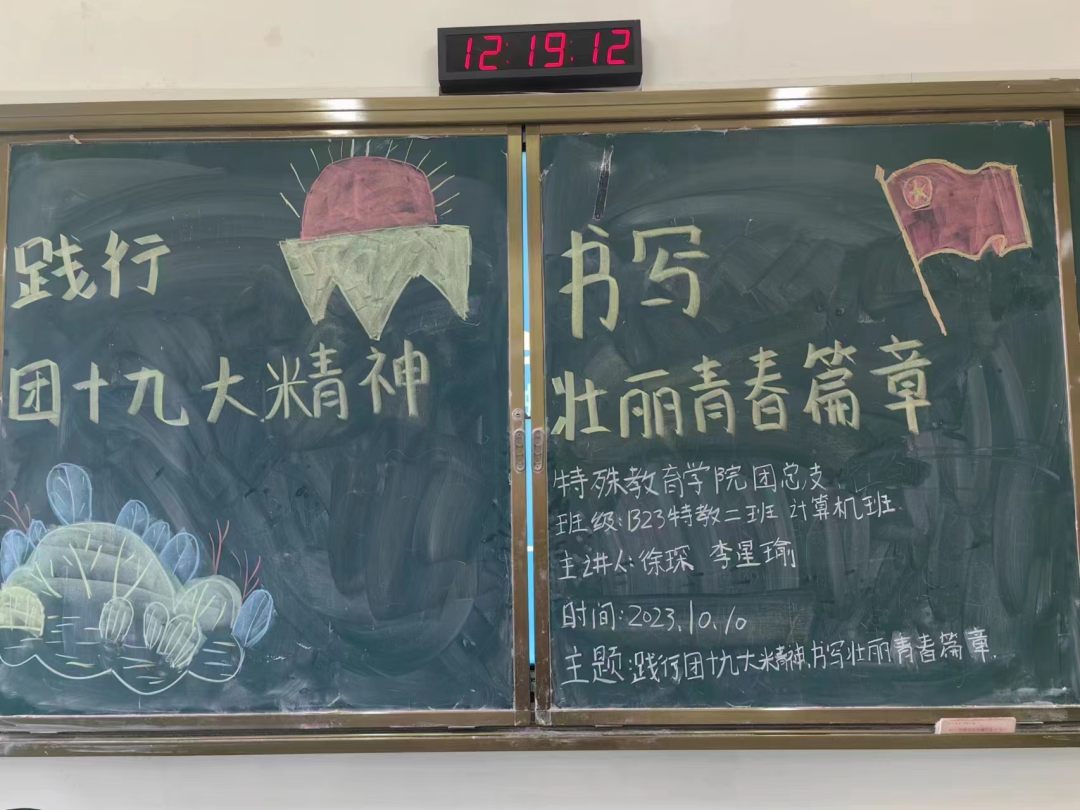 12:19:12
践行
团十九大精神
书写
壮丽青春篇章
特殊教育学院团总支
班级:B23特教二班 计算机班
主讲人:徐琛 李星瑜
时间:2023.10.10
主题:践行团十九大精神,书写壮丽青春篇章.